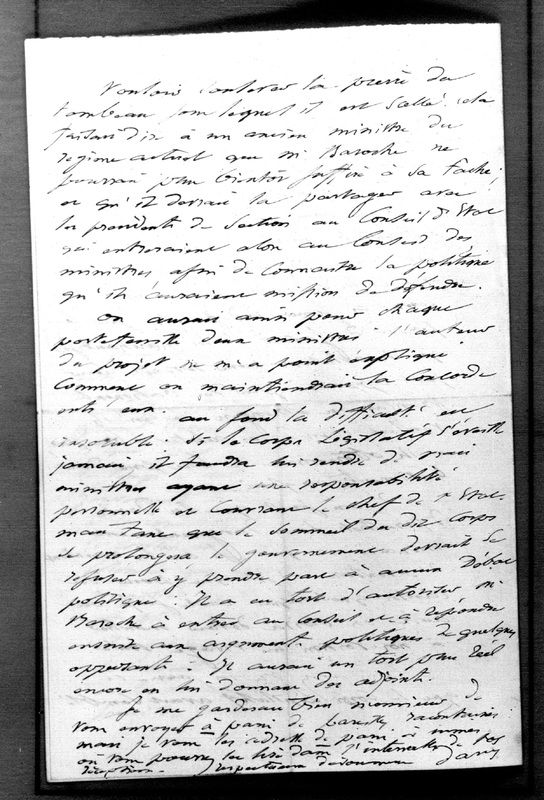 vouloir soulever la pierre du
tombeau sous lequel il est scellé. cela
faisait dire à un ancien ministre du
régime actuel que M. Baroche ne
pourrait plus bientôt suffire à sa tâche;
et qu'il devrait la partager avec
les présidents de section au Conseil d'Etat
qui entreraient alors au Conseil des
ministres, afin de connaître la politique
qu'ils auraient mission de défendre.
On aurait ainsi pour chaque
portefeuille deux ministres. l'auteur
du projet ne m'a point expliqué
comment on maintiendrait la concorde
entr'eux. au fond la difficulté est
insoluble. Si le Corps Législatif s'éveille
jamais, il faudra lui rendre de vrais
ministres ayant une responsabilité
personnelle et couvrant le chef de l'Etat.
mais tant que le sommeil du dit Corps
se prolongera le gouvernement devrait se
refuser à y prendre part à aucun débat
politique. Il a eu tort d'autoriser M.
Baroche à entrer au Conseil et à répondre
ensuite aux arguments politiques de quelques
opposants. Il aurait un tort plus réel
encore en lui donnant des adjoints.
Je me garderais bien monsieur de
vous envoyer à paris de pareils racontains
mais je vous les adresse de paris à
où vous pourrez les lire dans l'intervalle de
réception.